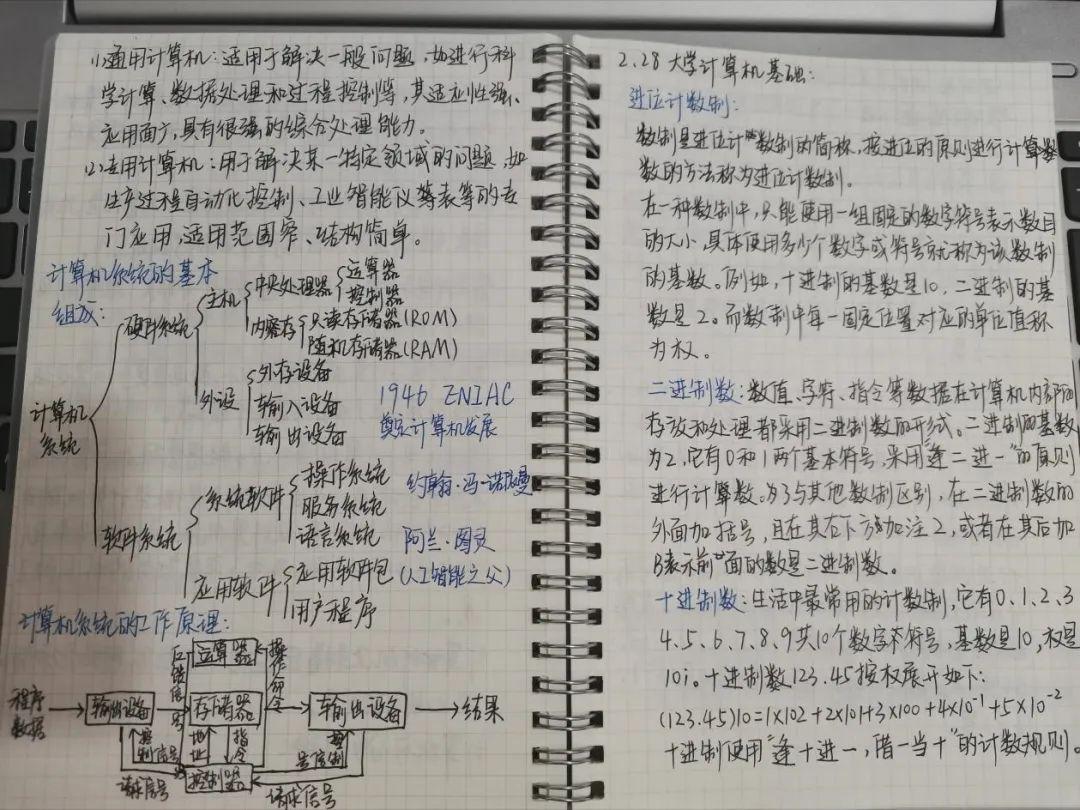 (1)通用计算机：适用于解决一般问题，如进行科
学计算、数据处理和过程控制等，其适应性强、
应用面广，具有很强的综合处理能力。
(2)专用计算机：用于解决某一特定领域的问题，如
生产过程自动化控制、工业智能仪等表等的专
门应用，适用范围窄、结构简单。
计算机系统的基本
组成：
计算机
系统
硬件系统
主机
中央处理器
运算器
控制器
内存
只读存储器(ROM)
随机存储器(RAM)
外设
外存设备
输入设备
输出设备
1946 ENIAC
奠定计算机发展
软件系统
系统软件
操作系统
服务系统
语言系统
约翰·冯·诺依曼
阿兰·图灵
(人工智能之父)
应用软件
应用软件包
用户程序
计算机系统的工作原理：
程序
数据
输出设备
反馈信号
运算器
操作命令
存储器
输出设备
结果
控制信号
地址
指令
控制
信号
控制器
请求信号
请求信号
2.28 大学计算机基础：
进位计数制：
数制是进位计数制的简称，按进位的原则进行计算
数的方法称为进位计数制。
在一种数制中，只能使用一组固定的数字符号表示数目
的大小，具体使用多少个数字或符号就称为该数制
的基数。例如，十进制的基数是10，二进制的基
数是2。而数制中每一固定位置对应的单位值称
为权。
二进制数：数值、字符、指令等数据在计算机内部的
存放和处理都采用二进制数的形式。二进制的基数
为2，它有0和1两个基本符号，采用“逢二进一”的原则
进行计算数。为了与其他数制区别，在二进制数的
外面加括号，且在其右下方加注2，或者在其后加
B表示前面的数是二进制数。
十进制数：生活中最常用的计数制，它有0、1、2、3
4、5、6、7、8、9共10个数字符号，基数是10，权是
10i。十进制数123.45按权展开如下：
(123.45)10=1×102+2×101+3×100+4×10⁻¹+5×10⁻²
十进制使用“逢十进一，借一当十”的计数规则。